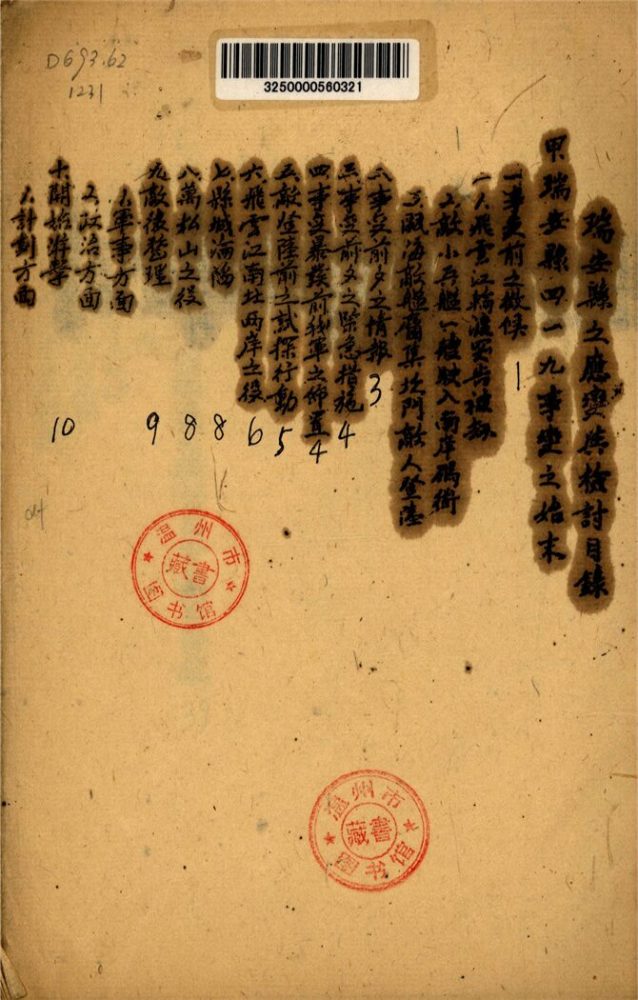 D693.62
1231
3250000560321
瑞安縣之應變與檢討目錄
甲瑞安縣四一九事變之始末
一事變前之徵候 1
1.飛雲江輪渡警告被劫
2.敵小兵艦一艘駛入南岸碼衛
3.甌海敵艦廣集坎門敵人登陸
二事變前夕之情報 3
三事變前夕之緊急措施 4
四事變暴發前我軍之佈置 4
五敵登陸前之試探行動 5
六飛雲江南北兩岸之役 6
七縣城淪陷 8
八萬松山之役 8
九敵後整理 9
1.軍事方面
2.政治方面
十開始將學 10
1.計劃方面
温州市
圖书馆
藏書
温州市
圖书馆
藏書